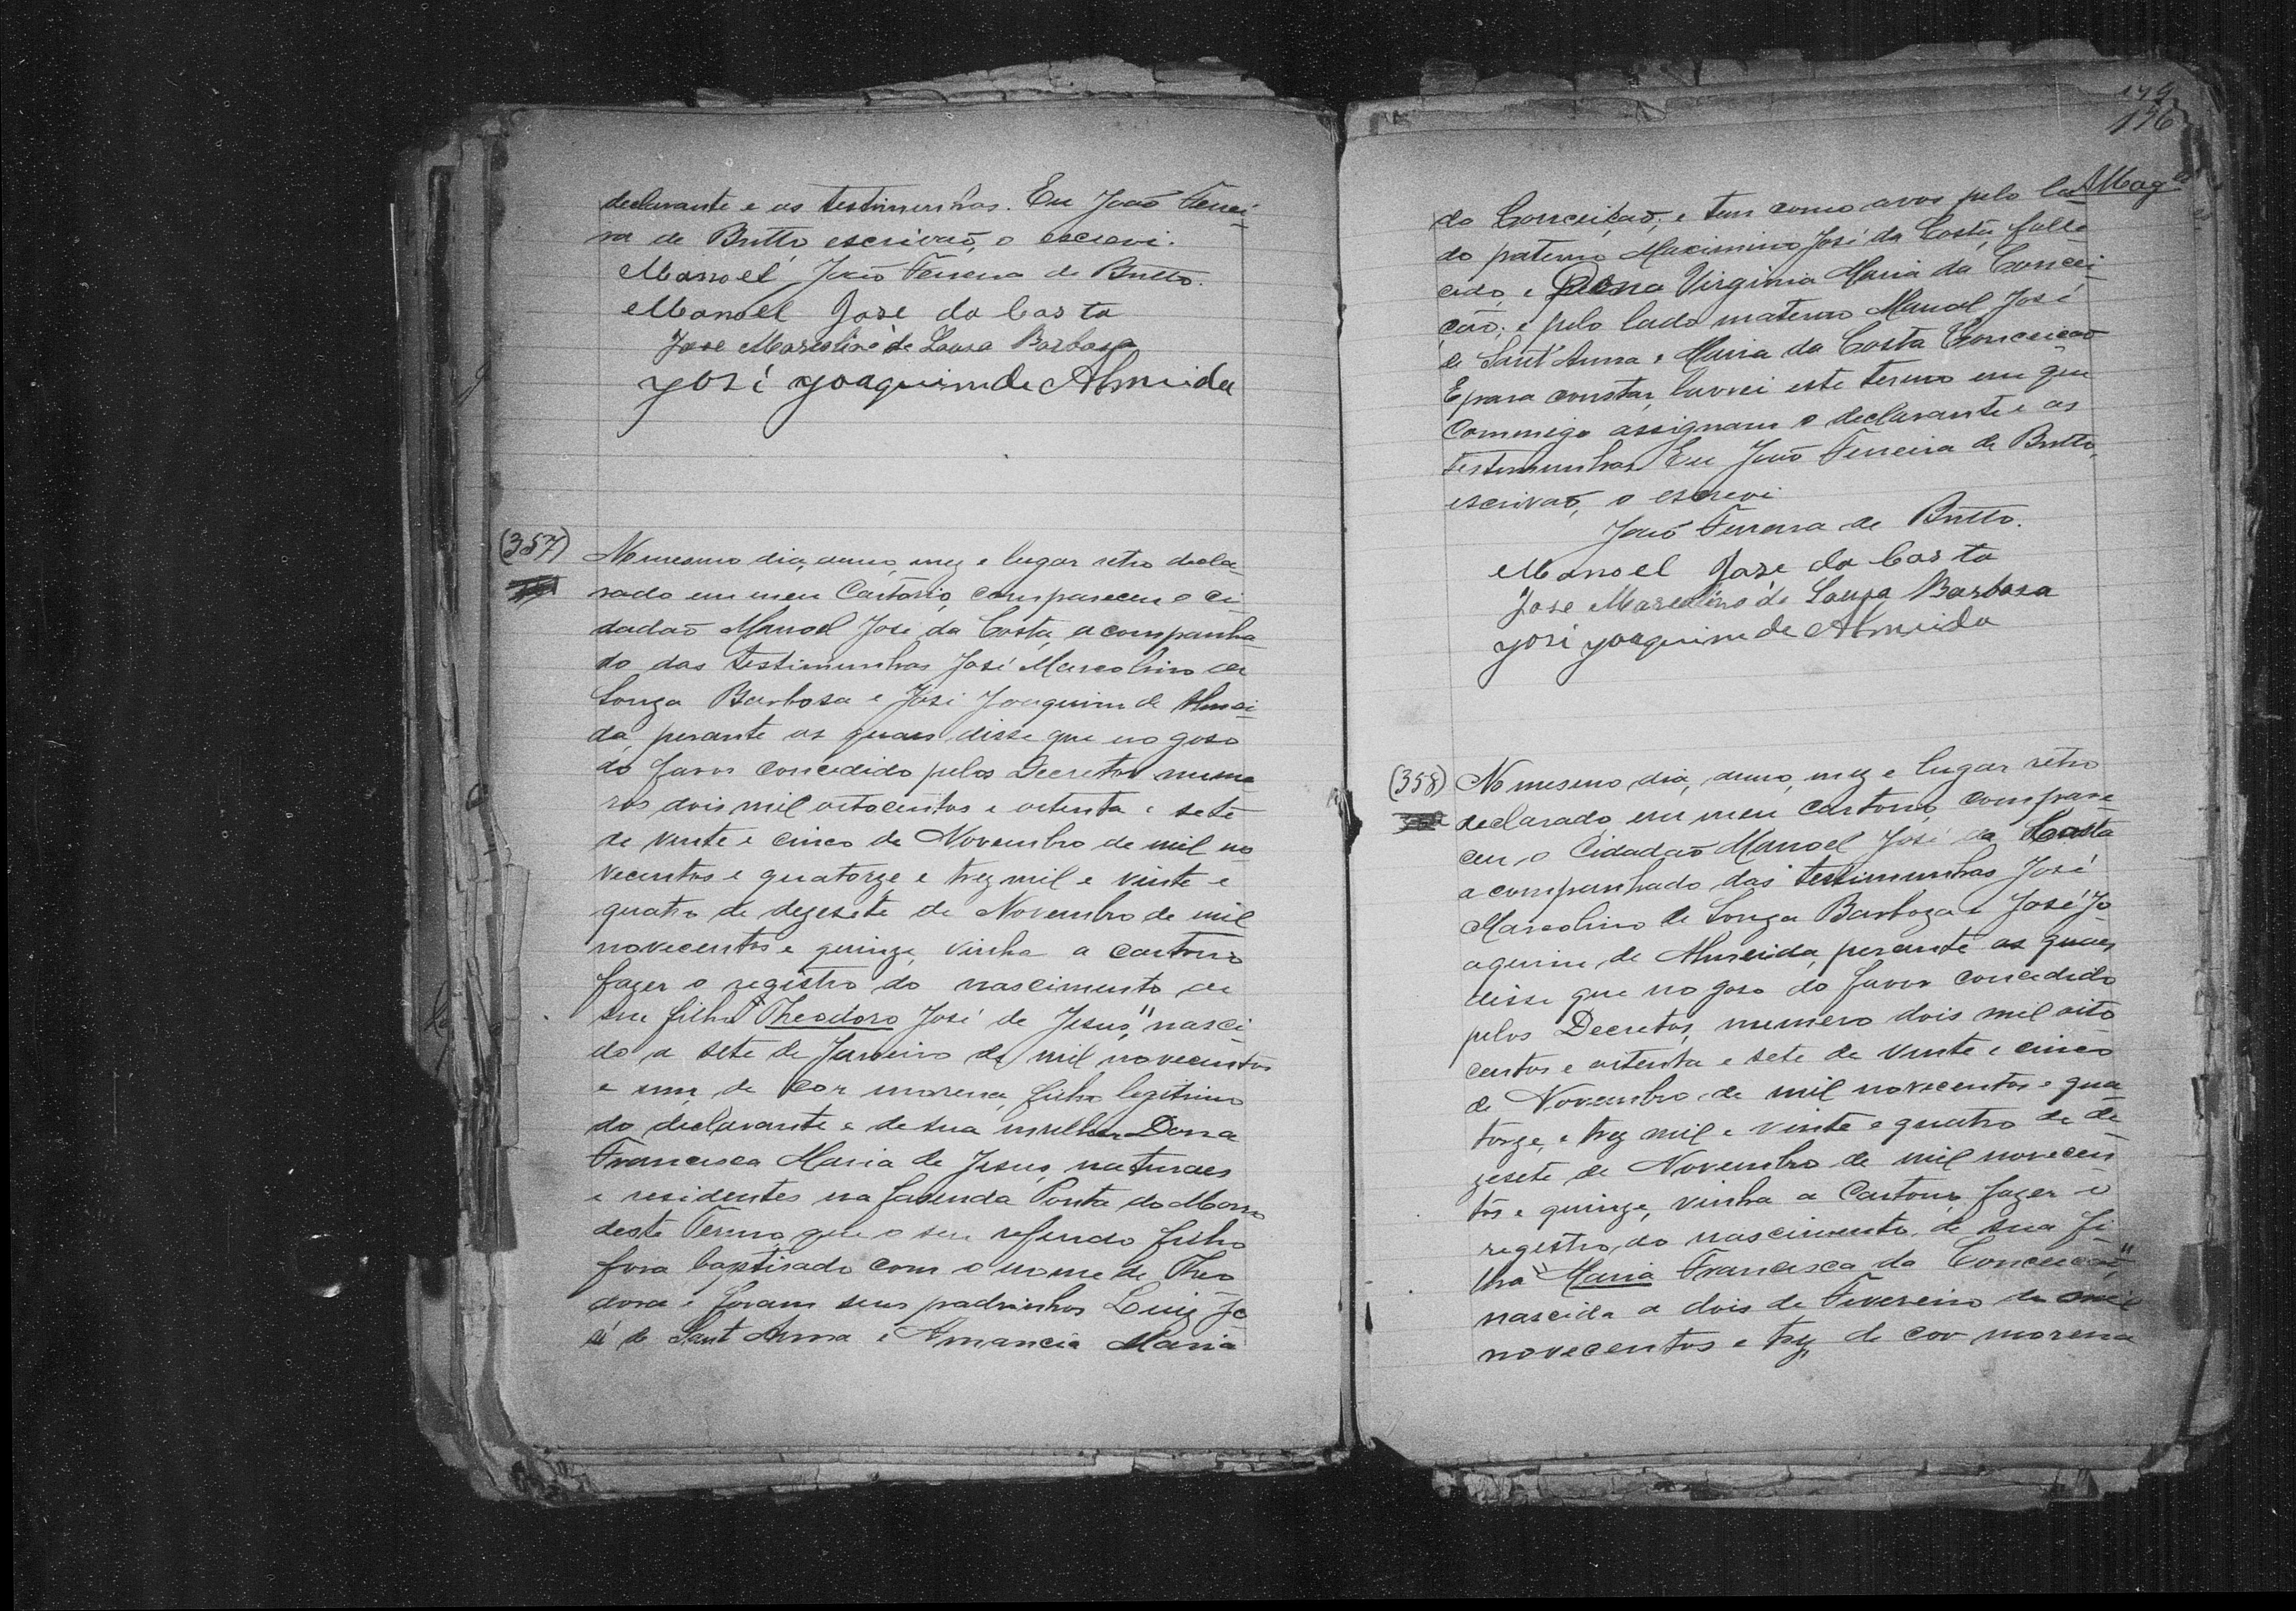 declarante e as testimunhas. Eu João Ferrei-
ra de Britto escrivão, o escrevi.
Manoel, João Ferreira de Britto.
Manoel José da Costa
Jose Marcolino de Souza Barbosa
José Joaquim de Almeida
(357)
No mesmo dia, anno, mez e lugar retro decla-
rado em meu Cartorio, compareceu o ci-
dadão Manoel José da Costa, acompanha-
do das testimunhas José Marcolino de
Souza Barbosa e José Joaquim de Almei-
da, perante as quaes disse que no goso
do favor concedido pelos Decretos nume-
ros dois mil oitocentos e oitenta e sete
de vinte e cinco de Novembro de mil no-
vecentos e quatorze e trez mil e vinte e
quatro de dezesete de Novembro de mil
novecentos e quinze, vinha a cartorio
fazer o registro do nascimento de
seu filho "Theodoro José de Jesus", nasci-
do a sete de Janeiro de mil novecentos
e um, de cor morena, filho legitimo
do declarante e de sua mulher Dona
Francisca Maria de Jesus, naturaes
e residentes na fasenda Ponta do Morro
deste Termo, que o seu referido filho
fora baptisado com o nome de Theo-
doro e foram seus padrinhos Luiz Jo-
sé de Sant'Anna e Amancia Maria
149
146
AMag
da Conceição; e tem como avos pelo la-
do paterno Maximino José da Costa, falle-
cido, e Dona Virginia Maria da Concei-
ção; e pelo lado materno Manoel José
de Sant'Anna e Maria da Costa Conceição
E para constar, lavrei este termo em que
Commigo assignam o declarante e as
testimunhas. Eu João Ferreira de Britto,
escrivão, o escrevi
João Ferreira de Britto.
Manoel José da Costa
Jose Marcolino de Souza Barbosa
José Joaquim de Almeida
(358)
No mesmo dia, anno, mez e lugar retro
declarado em meu cartorio, compare-
ceu o Cidadão Manoel José da Costa
acompanhado das testimunhas José
Marcolino de Souza Barboza e José Jo-
aquim de Almeida, perante as quaes
disse que no goso do favor concedido
pelos Decretos, numero dois mil oito
centos e oitenta e sete de vinte e cinco
de Novembro de mil novecentos e qua-
torze, e trez mil e vinte e quatro de de-
zesete de Novembro de mil novecen-
tos e quinze, vinha a Cartorio fazer o
registro do nascimento de sua fi-
lha "Maria Francisca da Conceição",
nascida a dois de Fevereiro de mil
novecentos e trez, de cor morena